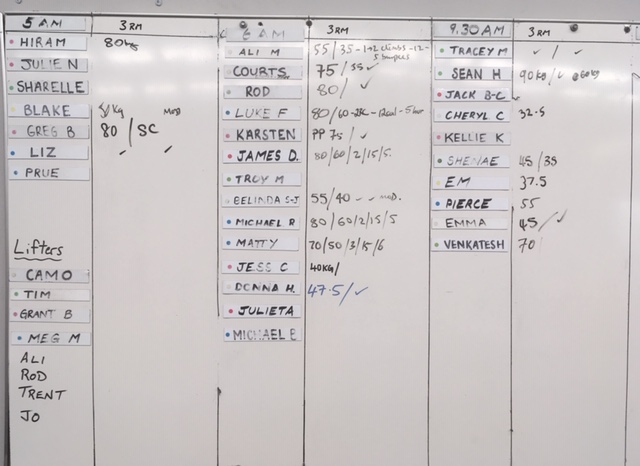 5 AM 3RM
HIRAM 80kg
JULIE N
SHARELLE
BLAKE
GREG B 80 / SC
LIZ
PRUE
Lifters
CAMO
TIM
GRANT B
MEG M
ALI
ROD
TRENT
JO
6 AM 3RM
ALI M 55/35
COURTS 75/55 ✓
ROD 80/ ✓
LUKE F 80/60
KARSTEN PP 75 / ✓
JAMES D. 80/60/2/15/5
TROY M
BELINDA S-J 55/40 - - mod.
MICHAEL R 80/60/2/15/5
MATTY 70/50/3/15/6
JESS C 40KG/
DONNA H. 47.5/✓
JULIETA
MICHAEL B
9.30AM 3RM
TRACEY M ✓ / ✓
SEAN H 90kg/✓ @60kg
JACK B-C
CHERYL C 32.5
KELLIE K
SHENAE 45/35
EM 37.5
PIERCE 55
EMMA 45/✓
VENKATESH 70